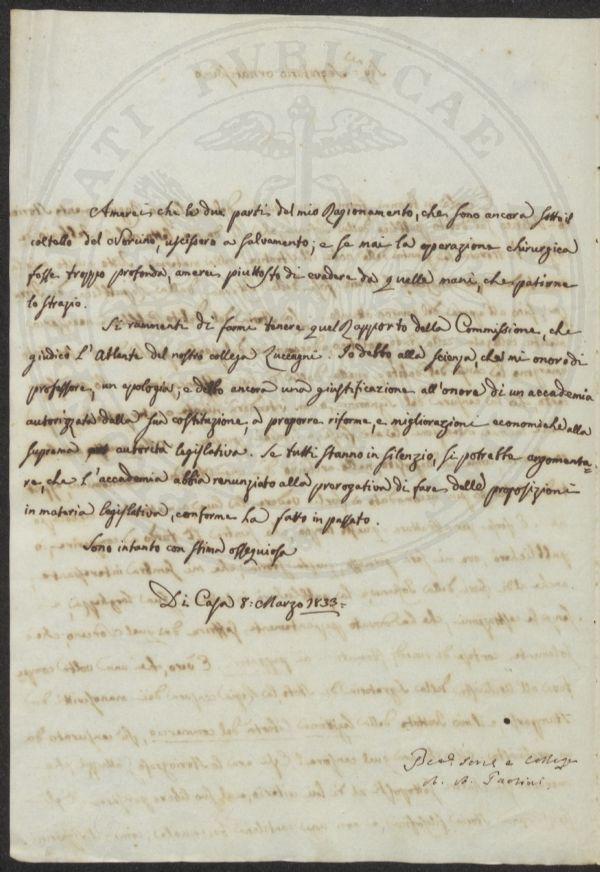 Amerei, che le due parti del mio Ragionamento, che sono ancora sotto il
coltello del Norcino, uscissero a salvamento; e se mai la operazione chirurgica
fosse troppo profonda, amerei piuttosto di evadere da quelle mani, che patirne
lo strazio.
Si rammenti di farmi tenere quel Rapporto della Commissione, che
giudicò l'Atlante del nostro collega Zuccagni. Io debbo alla scienza, che mi onoro di
professare, un apologia; e debbo ancora una giustificazione all'onore di un accademia
autorizzata dalla sua costituzione, a proporre riforme, e migliorazioni economiche alla
suprema autorità legislativa. Se tutti stanno in silenzio, si potrebbe argomenta=
re, che l'accademia abbia renunziato alla prerogativa di fare delle proposizioni
in materia legislativa, conforme ha fatto in passato.
Sono intanto con stima ossequiosa
Di Casa 8: Marzo 1833=
Servre e Collega
A. B. Paolini
PUBLICAE